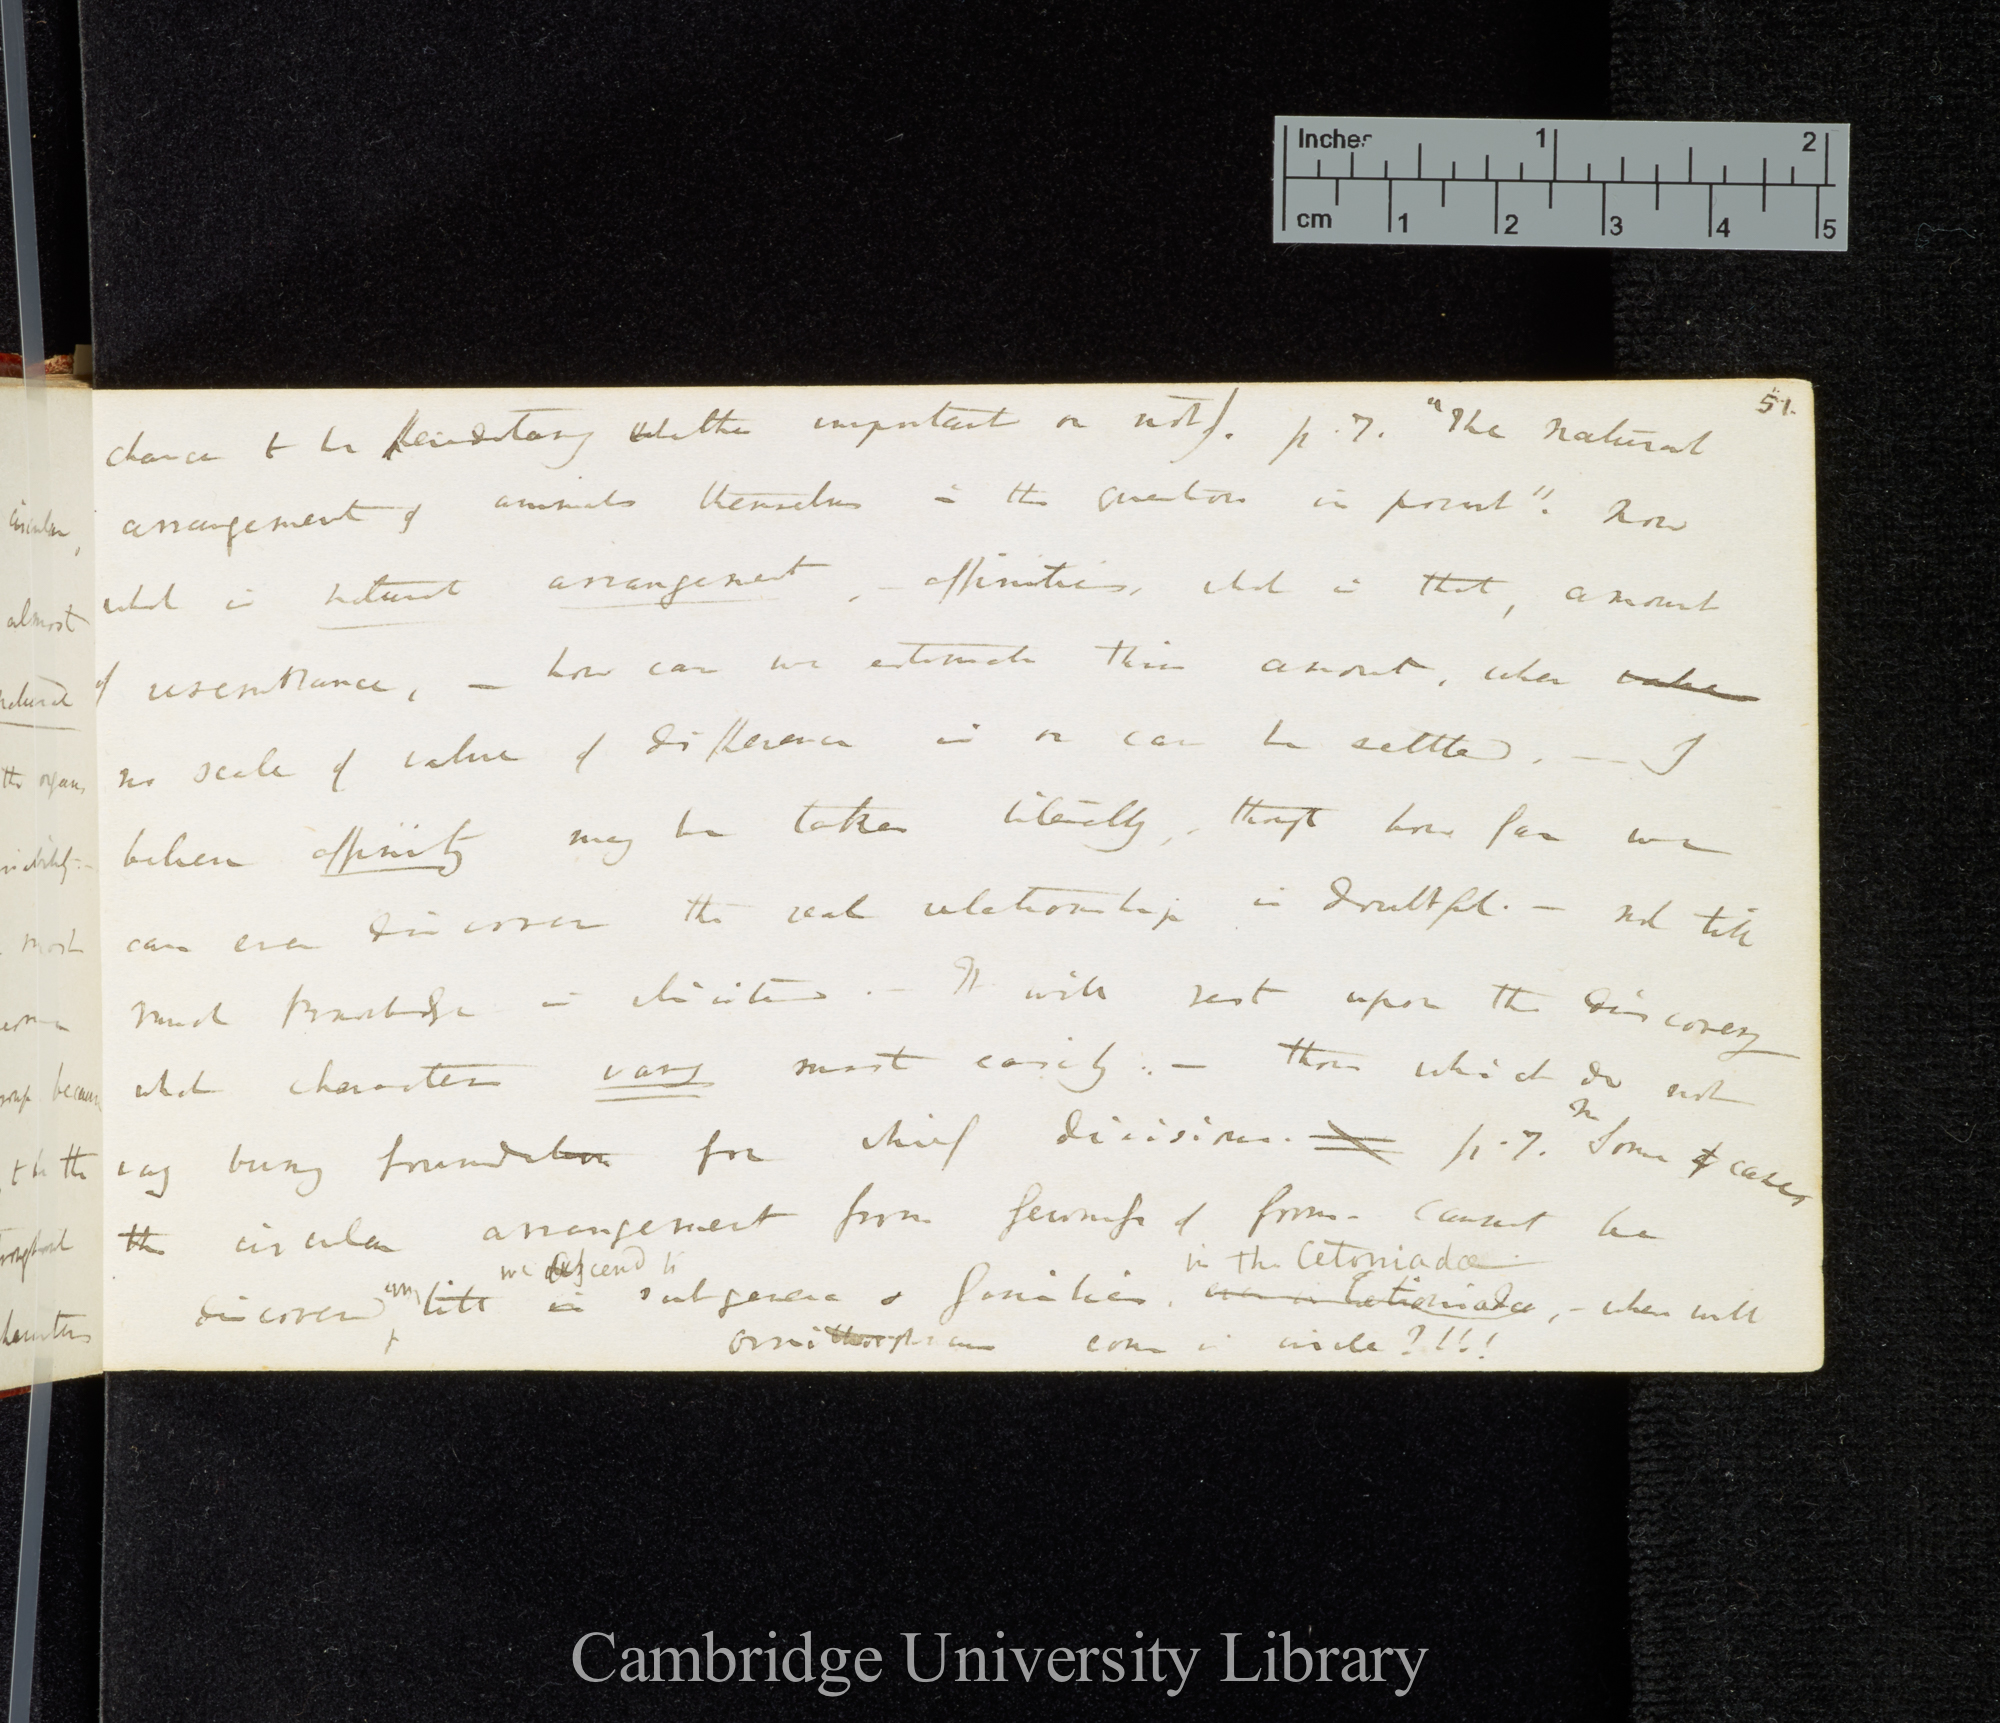 Inches 1 2
cm 1 2 3 4 5
51.
chance & be hereditary whether important or not). p. 7. "The natural
arrangement of animals themselves is the question in point". Now
what is natural arrangement, – affinities, what is that, amount
of resemblance, – how can we estimate this amount, when value
no scale of value of difference is or can be settled. — I
believe affinity may be taken literally, though how far we
can ever discover the real relationship is doubtful. — not till
much knowledge is elicited. — It will rest upon the discovery
what characters vary most easily: — those which do not
vary being foundation for chief divisions. p. 7. In Some of cases
the circular arrangement from fewness of forms cannot be
we descend to in the Cetoniadæ
discovered till in subgenera & families, Cetoniadæ, – when will
come in circle?!!!
circular,
almost
natural
the organs
most
because
& in the
characters
Cambridge University Library